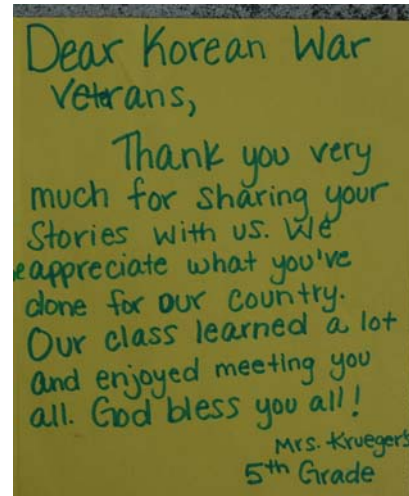 Dear Korean War
Veterans,
Thank you very
much for sharing your
Stories with us. We
appreciate what you've
done for our country.
Our class learned a lot
and enjoyed meeting you
all. God bless you all!
Mrs. Krueger's
5th Grade